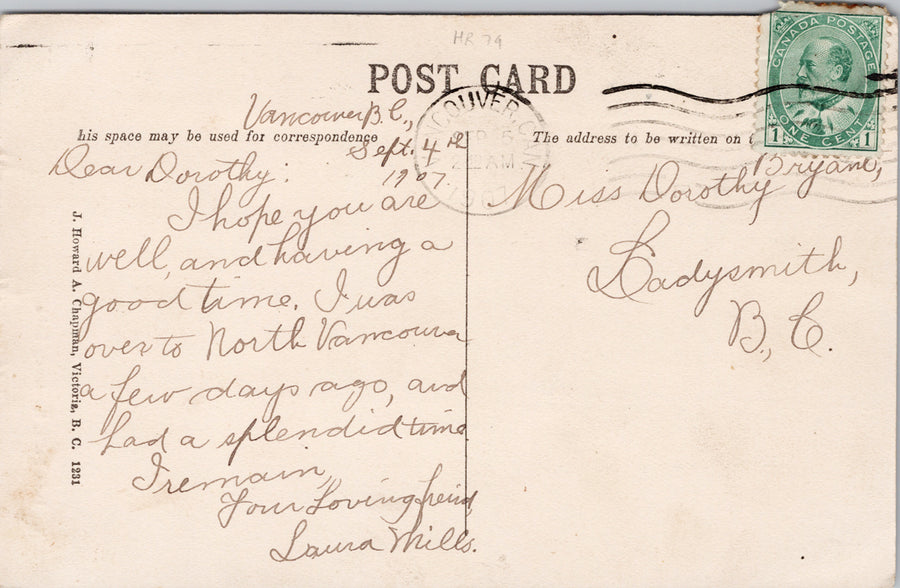 HR 79
POST CARD
Vancouver B.C.,
his space may be used for correspondence
Sept. 4th
1907.
Dear Dorothy:
I hope you are
well, and having a
good time. I was
over to North Vancouver
a few days ago, and
had a splendid time
I remain,
Your Loving freind,
Laura Mills.
J. Howard A. Chapman, Victoria, B. C. 1231
COUVER, C
AM
The address to be written on
Miss Dorothy
Ladysmith,
B., C.
CANADA POSTAGE
1 ONE CENT 1